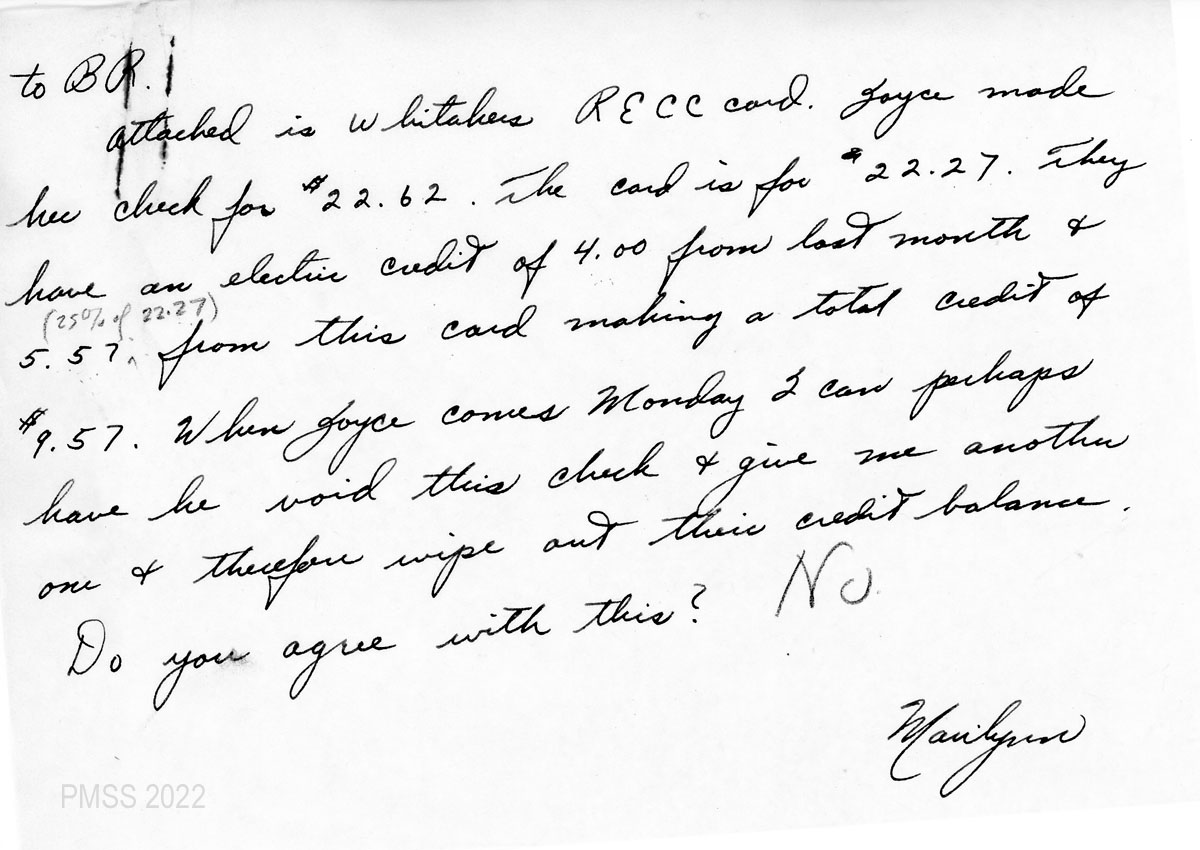 to BR.
attached is Whitakers RECC card. Joyce made
her check for $22.62. The card is for $22.27. They
have an electric credit of 4.00 from last month &
(25% of 22.27)
5.57 from this card making a total credit of
$9.57. When Joyce comes Monday I can perhaps
have he void this check & give me another
one & therefore wipe out their credit balance.
Do you agree with this? No
Marilynn
PMSS 2022